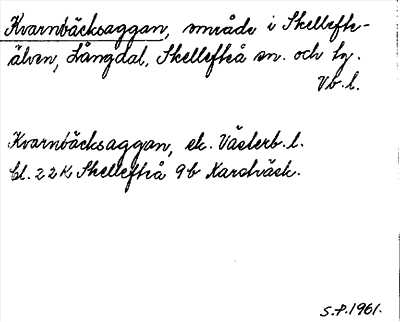 Kvarnbäcksaggan, område i Skellefte-
älven, Långdal, Skellefteå sn. och tg.
Vb. l.
Kvarnbäcksaggan, ek. Västerb. l.
bl. 22K Skellefteå 9b
S.P. 1961.